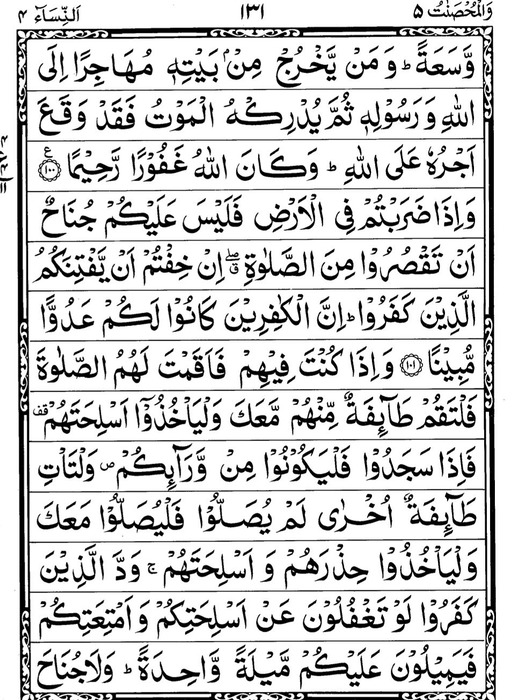 وَالْمُحْصَنٰتُ ٥ ١٣١ اَلنِّسَآء ٤
وَّسَعَةً ؕ وَ مَنْ يَّخْرُجْ مِنْۢ بَيْتِهٖ مُهَاجِرًا اِلَى
اللّٰهِ وَ رَسُوْلِهٖ ثُمَّ يُدْرِكْهُ الْمَوْتُ فَقَدْ وَقَعَ
اَجْرُهٗ عَلَى اللّٰهِ ؕ وَ كَانَ اللّٰهُ غَفُوْرًا رَّحِيْمًا ۧ ﴿١٠٠﴾
وَ اِذَا ضَرَبْتُمْ فِي الْاَرْضِ فَلَيْسَ عَلَيْكُمْ جُنَاحٌ
اَنْ تَقْصُرُوْا مِنَ الصَّلٰوةِ ۖۗ اِنْ خِفْتُمْ اَنْ يَّفْتِنَكُمُ
الَّذِيْنَ كَفَرُوْا ؕ اِنَّ الْكٰفِرِيْنَ كَانُوْا لَكُمْ عَدُوًّا
مُّبِيْنًا ﴿١٠١﴾ وَ اِذَا كُنْتَ فِيْهِمْ فَاَقَمْتَ لَهُمُ الصَّلٰوةَ
فَلْتَقُمْ طَآئِفَةٌ مِّنْهُمْ مَّعَكَ وَلْيَاْخُذُوْٓا اَسْلِحَتَهُمْ قف
فَاِذَا سَجَدُوْا فَلْيَكُوْنُوْا مِنْ وَّرَآئِكُمْ ص وَلْتَاْتِ
طَآئِفَةٌ اُخْرٰى لَمْ يُصَلُّوْا فَلْيُصَلُّوْا مَعَكَ
وَلْيَاْخُذُوْا حِذْرَهُمْ وَ اَسْلِحَتَهُمْ ۚ وَدَّ الَّذِيْنَ
كَفَرُوْا لَوْ تَغْفُلُوْنَ عَنْ اَسْلِحَتِكُمْ وَ اَمْتِعَتِكُمْ
فَيَمِيْلُوْنَ عَلَيْكُمْ مَّيْلَةً وَّاحِدَةً ؕ وَلَا جُنَاحَ